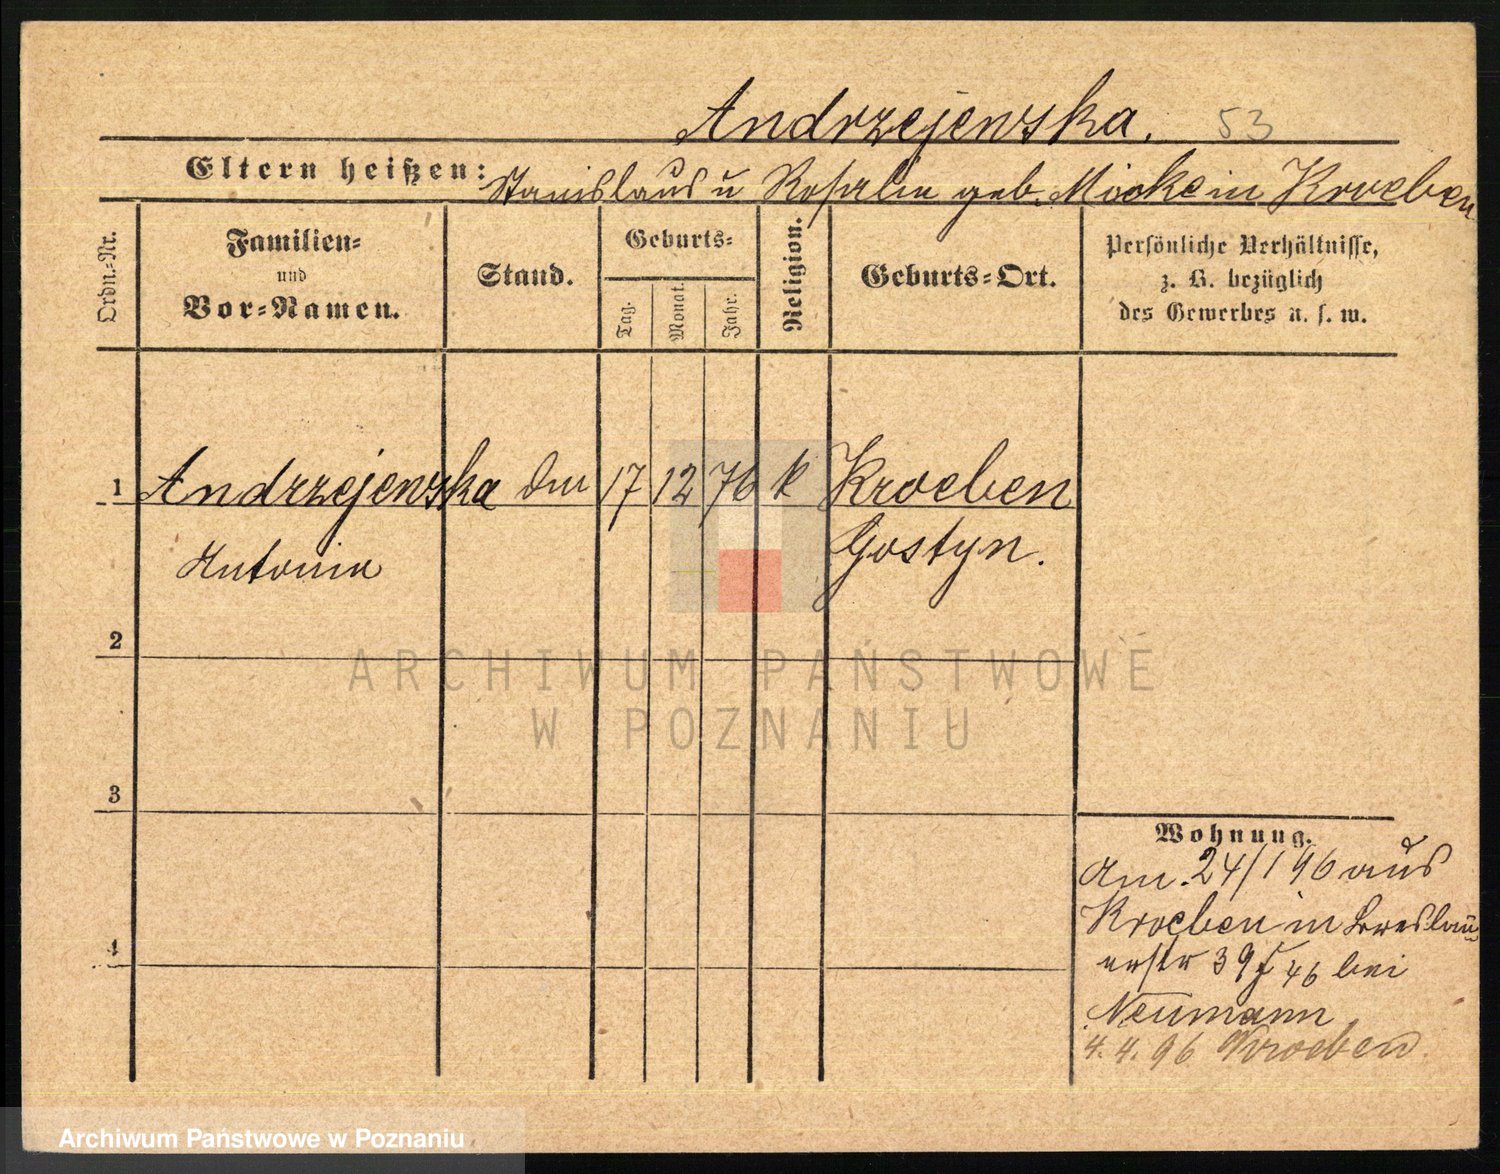 Andrzejewska. 53
Eltern heißen: Stanislaus u Rosalie geb. Mocke in Kroeben
Ordn.-Nr.
Familien-
und
Vor-Namen.
Stand.
Geburts-
Tag.
Monat.
Jahr.
Religion.
Geburts-Ort.
Persönliche Verhältnisse,
z. B. bezüglich
des Gewerbes u. s. w.
1 Andrzejewska 17 12 76 k Kroeben
Antonie Gostyn.
2
3
4
Wohnung.
Am 24/1 96 aus
Kroeben in Breslau
erstr 39 46 bei
Neumann
4.4.96 Kroeben.
ARCHIWUM PAŃSTWOWE
W POZNANIU
Archiwum Państwowe w Poznaniu